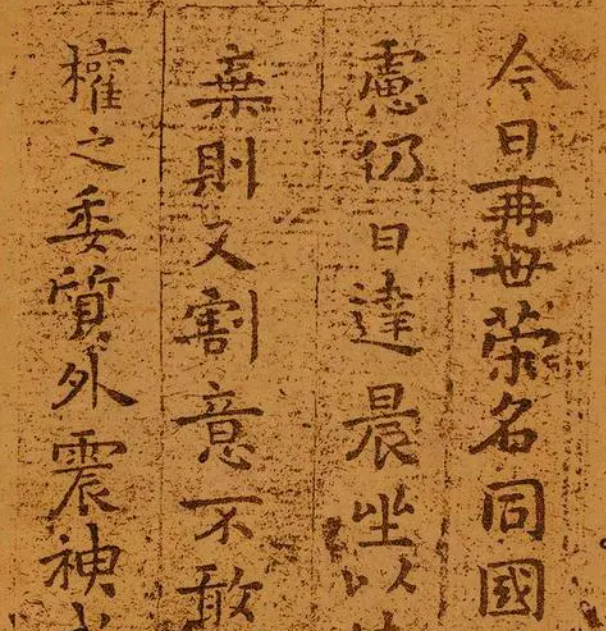 今日再世榮名同國
慮仍日達晨坐以
棄則又割意不敢
權之委質外震神